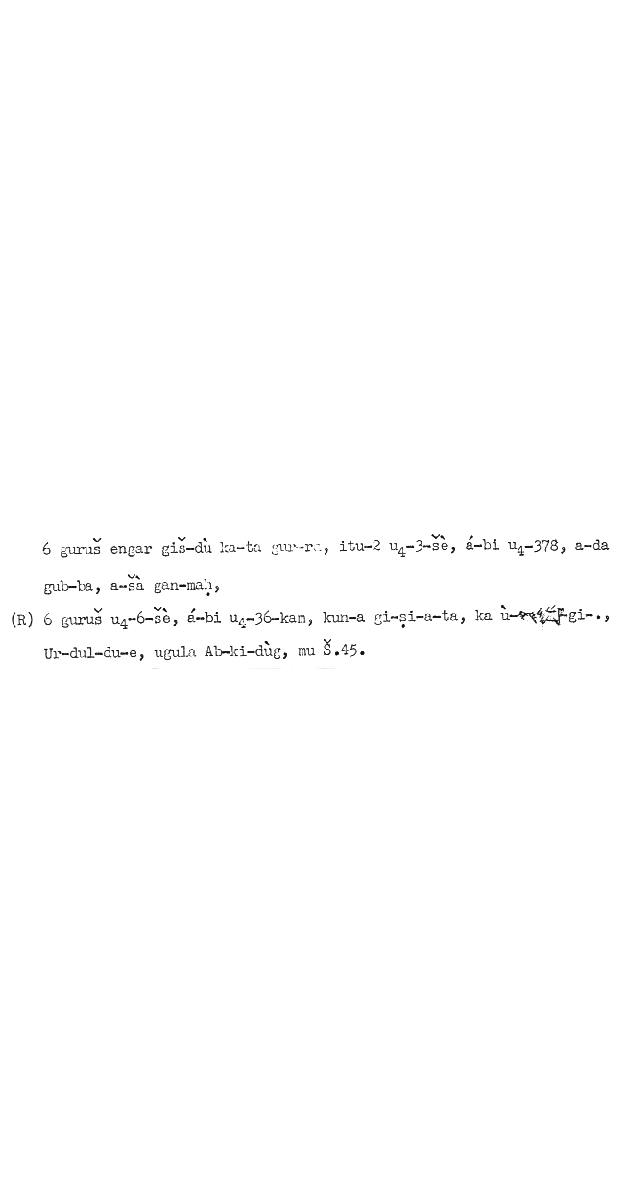 6 guruš engar giš-dù ka-ta gur-ra, itu-2 u₄-3-šè, á-bi u₄-378, a-da
gub-ba, a-šà gan-maḫ,
(R) 6 guruš u₄-6-šè, á-bi u₄-36-kan, kun-a gi-ṣi-a-ta, ka ù- -gi-.,
Ur-dul-du-e, ugula Ab-ki-dùg, mu Š.45.